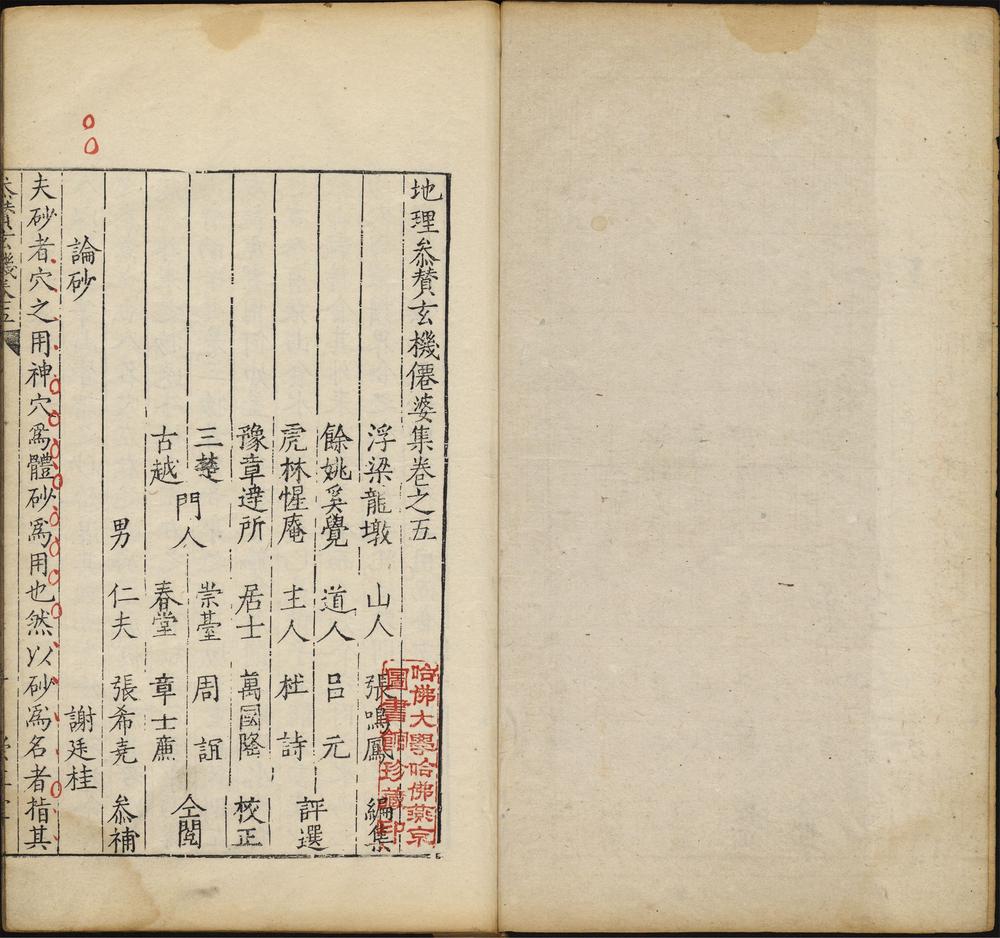 地理叅賛玄機僊婆集卷之五
浮梁龍墩 山人 張鳴鳳 編集
餘姚奚覺 道人 吕 元
虎林惺庵 主人 杜 詩 評選
豫章逹所 居士 萬國隆 校正
三楚 崇臺 周 誼
門人 仝閲
古越 春堂 章士㢘
男 仁夫 張希堯 叅補
論砂 謝廷桂
夫砂者穴之用神穴爲體砂爲用也然以砂爲名者指其
哈佛大學哈佛燕京
圖書館珍藏印